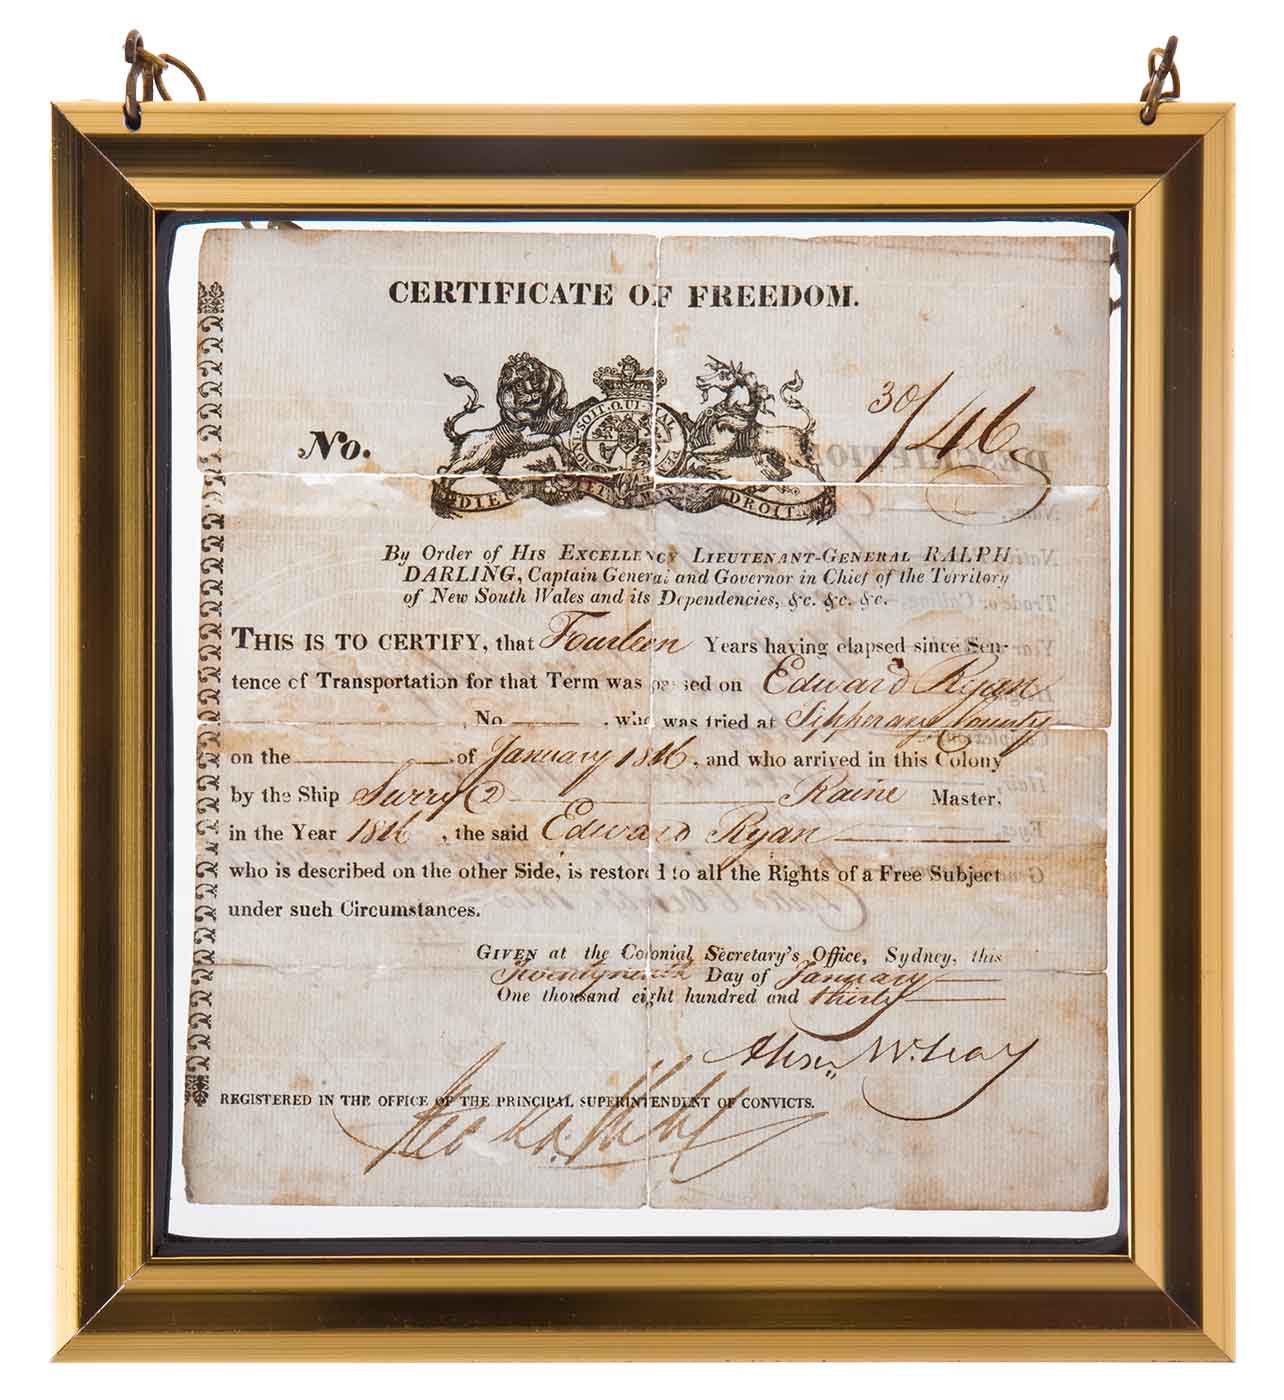 CERTIFICATE OF FREEDOM.
HONI·SOIT·QUI·MAL
DIEU ET MON DROIT
No. 30/46
By Order of HIS EXCELLENCY LIEUTENANT-GENERAL RALPH
DARLING, Captain General and Governor in Chief of the Territory
of New South Wales and its Dependencies, &c. &c. &c.
THIS IS TO CERTIFY, that Fourteen Years having elapsed since Sen-
tence of Transportation for that Term was passed on Edward Ryan
, No , who was tried at Tipperary County
on the of January 1816, and who arrived in this Colony
by the Ship Surry (2) Raine Master,
in the Year 1816, the said Edward Ryan
who is described on the other Side, is restored to all the Rights of a Free Subject
under such Circumstances.
GIVEN at the Colonial Secretary's Office, Sydney, this
Twentyninth Day of January
One thousand eight hundred and thirty
Alexr. McLeay
REGISTERED IN THE OFFICE OF THE PRINCIPAL SUPERINTENDENT OF CONVICTS.